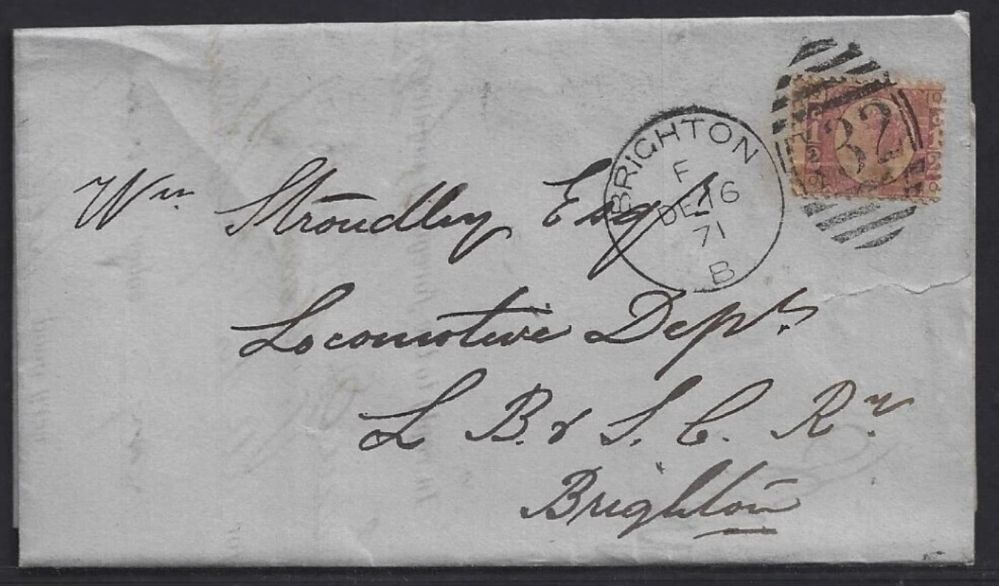 BRIGHTON
F
DE 16
71
B
32
Wm Stroudley Esqr
Locomotive Dept
L B. & S. C. Ry
Brighton